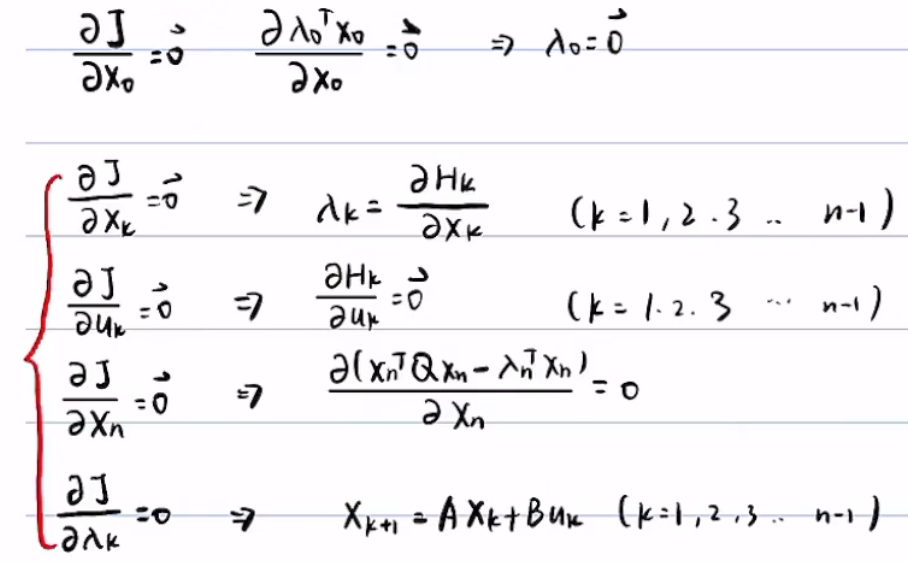 ∂J/∂x₀ = 0⃗ ∂λ₀ᵀx₀/∂x₀ = 0⃗ ⇒ λ₀ = 0⃗
∂J/∂xₖ = 0⃗ ⇒ λₖ = ∂Hₖ/∂xₖ (k = 1, 2 . 3 .. n-1)
∂J/∂uₖ = 0⃗ ⇒ ∂Hₖ/∂uₖ = 0⃗ (k = 1. 2. 3 ... n-1)
∂J/∂xₙ = 0⃗ ⇒ ∂(xₙᵀQxₙ - λₙᵀxₙ)/∂xₙ = 0
∂J/∂λₖ = 0 ⇒ xₖ₊₁ = Axₖ + Buₖ (k=1, 2, 3 .. n-1)